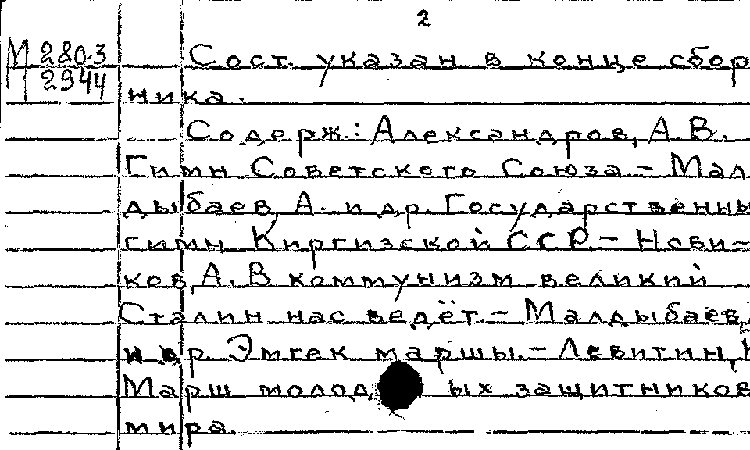 2
М 2803 Сост. указан в конце сбор
2944 ника.
Содерж.: Александров, А.В.
Гимн Советского Союза - Мал
дыбаев, А. и др. Государственны
гимн Киргизской ССР. - Нови-
ков, А. В коммунизм великий
Сталин нас ведёт. - Малдыбаев,
и др. Эмгек маршы. - Левитин,
Марш молод ых защитников
мира.